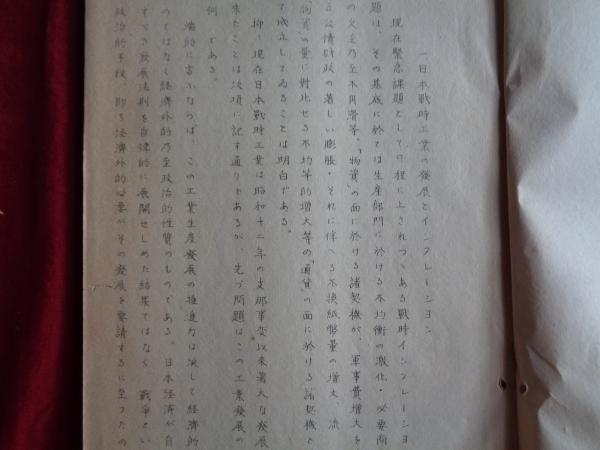 一日本戦時工業の発展とインフレーション
現在緊急課題として日程に上されつゝある戦時インフレーショ
題は、その基底に於ては生産部門に於ける不均衡の激化・必要商
の欠乏乃至不円滑等、「物資」の面に於ける諸契機が、軍事費増大を
公債財政の著しい膨脹・それに伴へる不換紙幣量の増大、流
物資」の量に対比せる不均等的増大等の「通貨」の面に於ける諸契機と
て成立してゐることは明白である。
抑〻現在日本戦時工業は昭和十二年の支那事変以来著大な発展
来たことは次項に記す通りであるが、先づ問題はこの工業発展の
何 である。
端的に言ふならば、この工業生産発展の推進力は決して経済的
のではなく経済外的乃至政治的性質のものである。日本経済が自
すべき発展法則を自律的に展開せしめた結果ではなく、戦争とい
政治的手段、即ち経済外的必要がその発展を要請するに至つたの